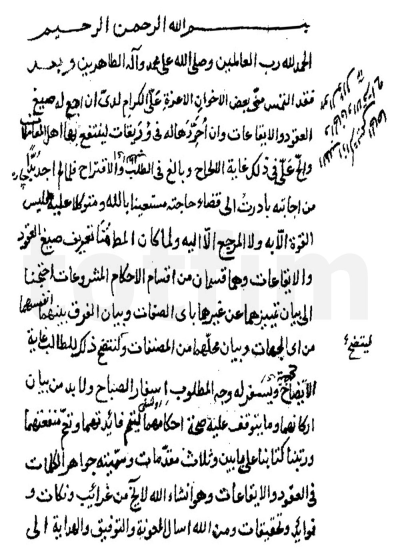 بسم الله الرحمن الرحيم
الحمد لله رب العالمين وصلى الله على محمد وآله الطاهرين وبعد
فقد التمس منى بعض الاخوان الاعزة علىّ الكرام لدىّ ان اجمع له صيغ
العقود والايقاعات وان أحرّرها له فى وُريقات لينتفع بها اهل المعاملات
والحّ علىّ فى ذلك غاية الالحاح وبالغ فى الطلب والاقتراح فلما لم اجد بُدّاً
من اجابته بادرت الى قضاء حاجته مستعينا بالله ومتوكلا عليه فليس
القوة الّا به ولا المرجع الّا اليه ولما كان المط هُنا تعريف صيغ العقود
والايقاعات وهما قسمان من اقسام الاحكام المشروعات احتجنا
الى بيان تميزهما عن غيرها باى الصفات وبيان الفرق بينهما انفسهما
من اى الجهات وبيان محلهما من المصنفات وليتضح ذلك للطالب غاية
ليتضح
الايضاح ويسفر له وجه المطلوب اسفار الصباح ولا بد من بيان
اركانهما وما يتوقف عليه صحة احكامهما ليتم فائدتهما وتعمّ منفعتهما
ورتبنا كتابنا على بابين وثلاث مقدّمات وسمّيته جواهر الكلمات
فى العقود والايقاعات وهو انشاء الله لايخ من غرائب ونكات و
فوائد وتحقيقات ومن الله اسال المعونة والتوفيق والهداية الى